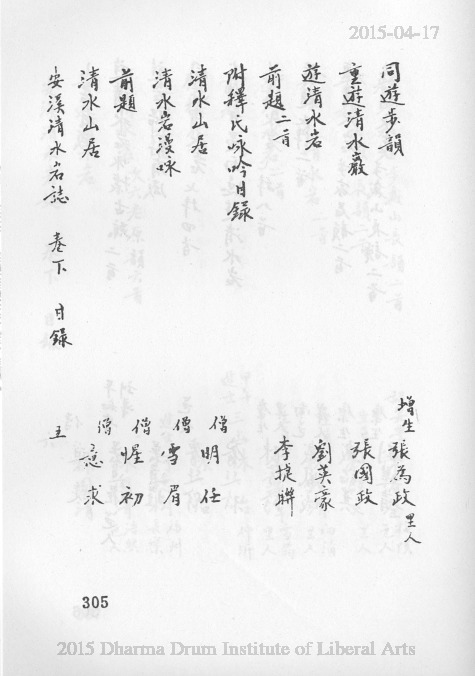 2015-04-17
同遊步韻 增生 張為政 里人
重遊清水巖 張國政
遊清水岩 劉英豪
前題二首 李捷聯
附釋氏咏吟目錄
清水山居 僧 明任
清水岩漫咏 僧 雪眉
前題 僧 惺初
清水山居 僧 意求
安溪清水岩誌 卷下 目錄 五
305
2015 Dharma Drum Institute of Liberal Arts